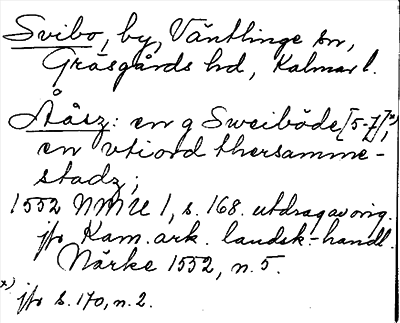 Svibo, by, Väntlinge sn,
Gräsgårds hd, Kalmar l.
Ååsz: en g Sweiböde [5-7]x),
en vtiord thersamme-
stadz;
1552 NMU 1, s. 168. utdrag av orig.
jfr Kam. ark. landsk.-handl.
Närke 1552, n. 5.
x) jfr s. 170, n. 2.